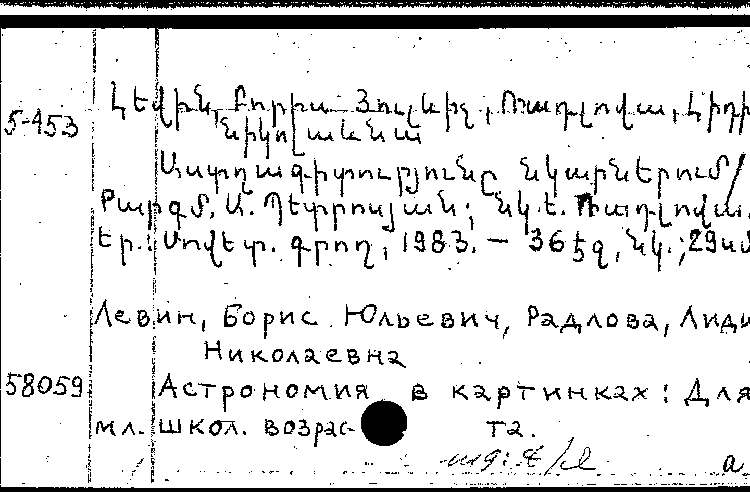 Լեվին, Բորիս Յուլևիչ, Ռադլովա, Լիդի
5-453
Նիկոլաևնա
Աստղագիտությունը նկարներում/
Թարգմ. Ա. Պետրոսյան; նկ. Ե. Ռադլովա.
Եր.: Սովետ. գրող, 1983. — 36 էջ, նկ.; 29սմ
Левин, Борис Юльевич, Радлова, Лиди
Николаевна
58059 Астрономия в картинках: Для
мл. школ. возрас та.
а